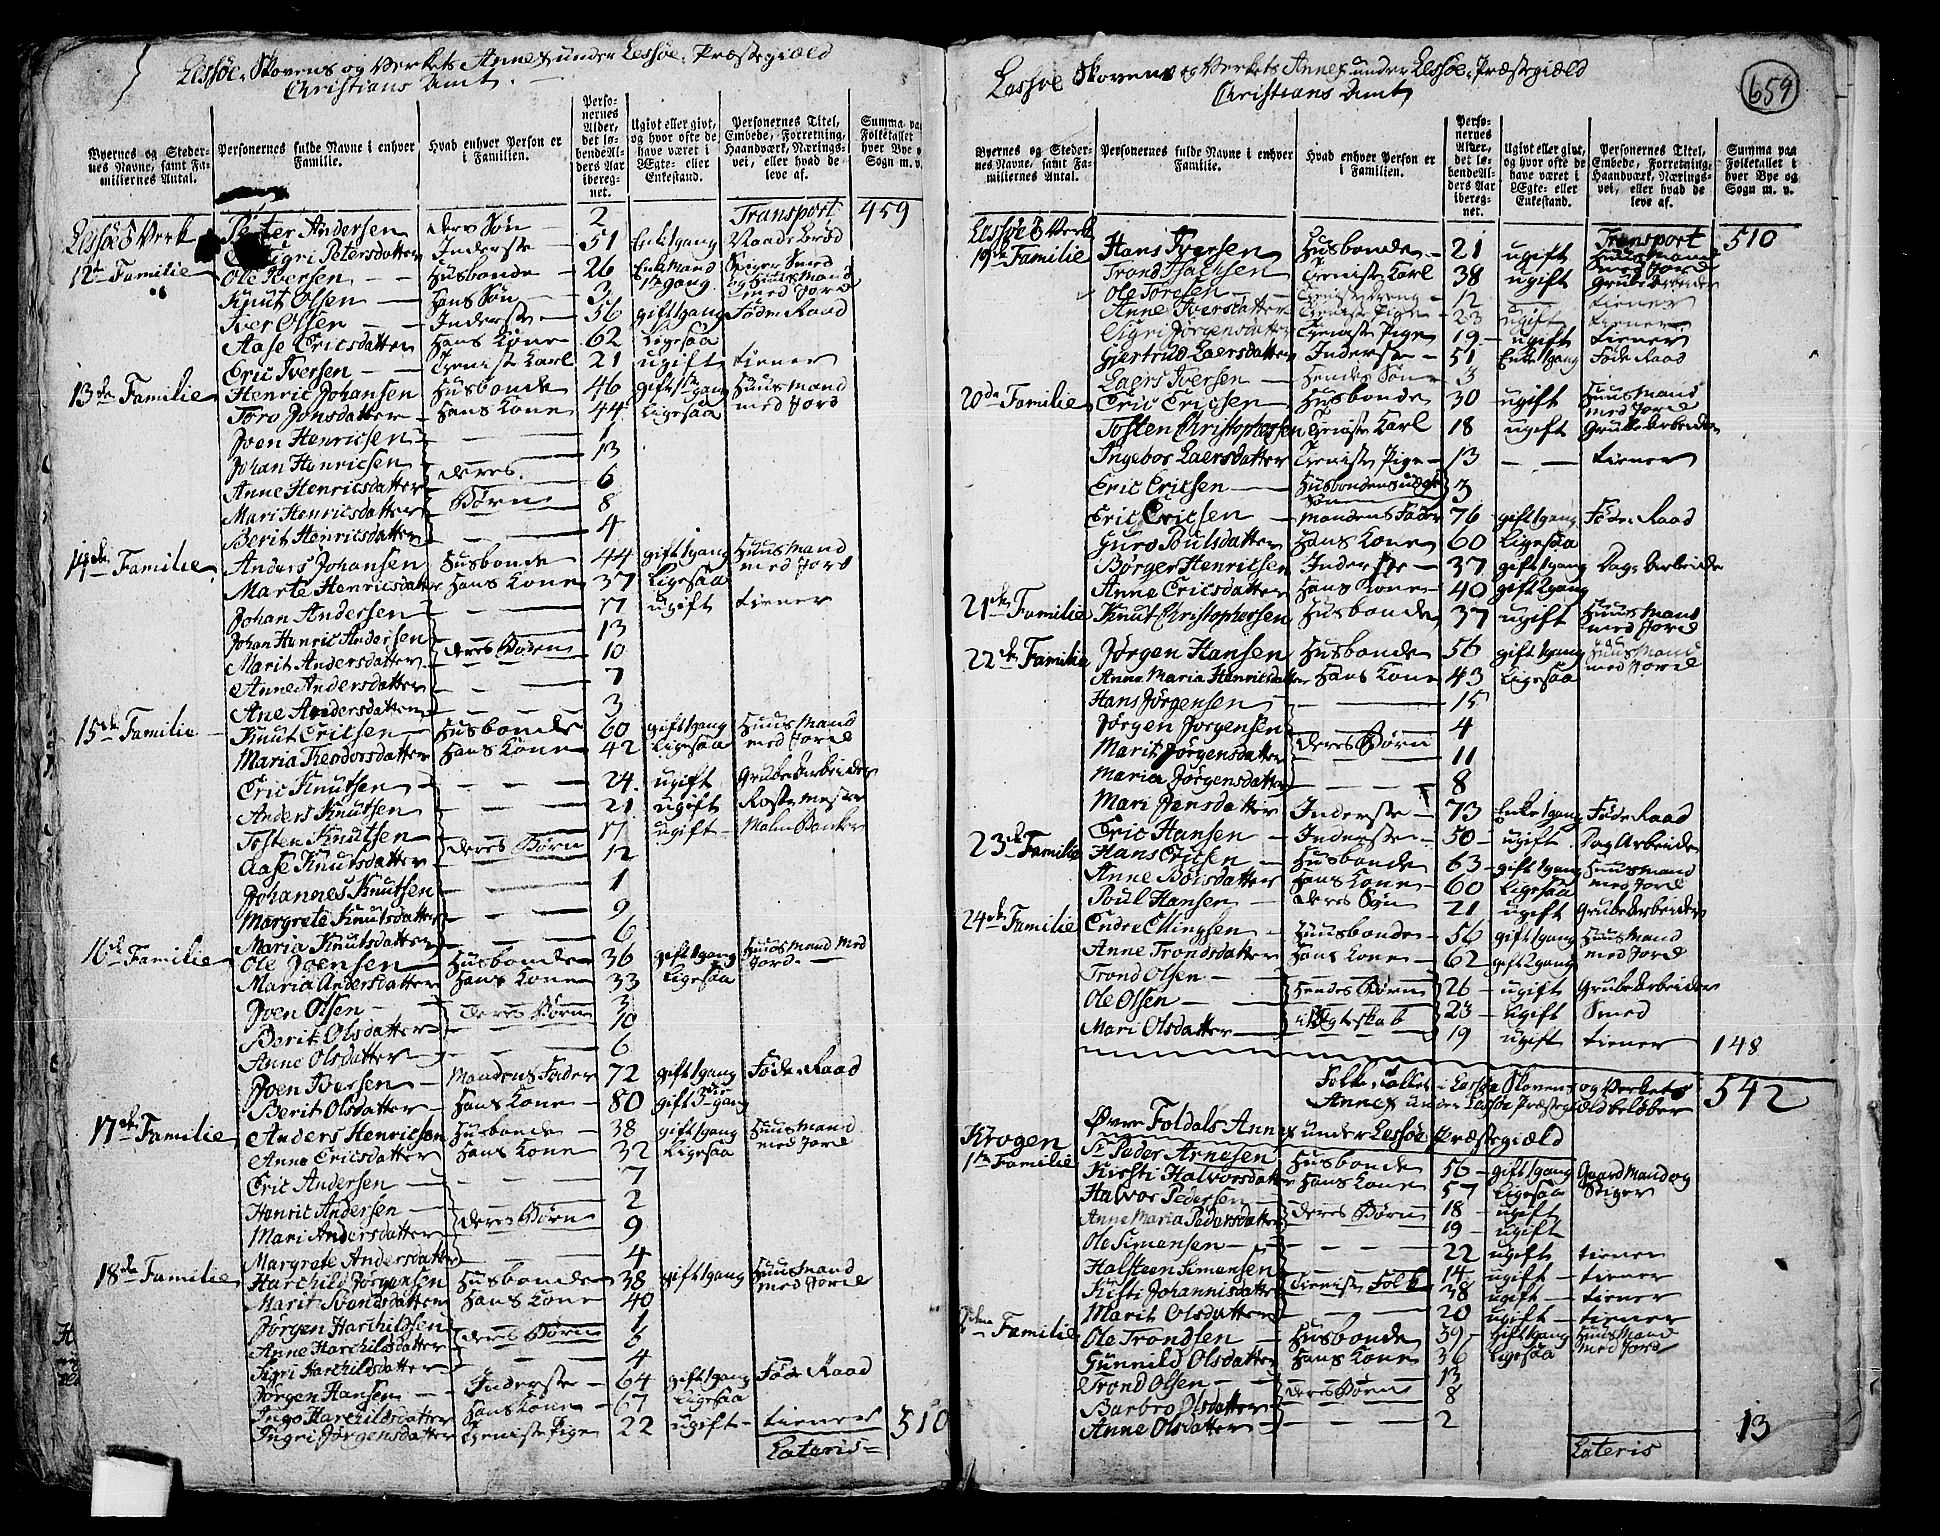 Lessøe Skovens og Verkets Annex under Lessøe Præstegiæld
Christians Amt.
Byernes og Stedernes Navne, samt Familiernes Antal.
Personernes fulde Navne i enhver Familie.
Hvad enhver Person er i Familien.
Personernes Alder, det løbende Alders Aar iberegnet.
Ugivt eller givt, og hvor ofte de have været i Ægte- eller Enkestand.
Personernes Titel, Embede, Forretning, Haandværk, Næringsvei, eller hvad de leve af.
Summa paa Folketallet i hver Bye og Sogn m. v.
Transport 459
Lessøe Verk Peter Andersen deres Søn 2
Sigri Petersdatter Inderste 51 Enke 1 gang
12te Familie Ole Iversen Husbonde 26 Enke Mand 1 gang Huus Mand med Jord
Knut Olsen Hans Søn 3
Iver Olsen Inderste 56 gift 1 gang Føde Raad
Aase Ericsdatter Hans Kone 62 Ligesaa
Eric Iversen Tieniste Karl 21 ugift tiener
13de Familie Henric Johansen Husbonde 46 gift 1 gang Huus Mand
Toro Jonsdatter Hans Kone 44 Ligesaa med Jord
Joen Henricsen 1
Johan Henricsen 13
Anne Henricsdatter deres 6
Mari Henricsdatter Børn 8
Berit Henricsdatter 4
14de Familie Anders Johansen Husbonde 44 gift 1 gang Huus Mand
Marte Henricsdatter Hans Kone 37 Ligesaa med Jord
Johan Andersen 17 ugift tiener
Johan Henric Andersen 13
Marit Andersdatter deres Børn 10
Anne Andersdatter 7
Ane Andersdatter 3
15de Familie Knut Ericsen Husbonde 60 gift 1 gang Huus Mand
Maria Theodorsdatter Hans Kone 42 Ligesaa med Jord
Eric Knutsen 24 ugift Grube Arbeider
Anders Knutsen 21 ugift Røste Mester
Tosten Knutsen 17 ugift
Aase Knutsdatter deres Børn 12
Johannes Knutsen 1
Margrete Knutsdatter 9
Maria Knutsdatter 6
16de Familie Ole Joensen Husbonde 36 gift 1 gang Huus Mand med
Maria Andersdatter Hans Kone 33 Ligesaa Jord
Joen Olsen 3
Berit Olsdatter deres Børn 10
Anne Olsdatter 6
Joen Iversen Mandens Fader 72 gift 1 gang Føde Raad
Berit Olsdatter Hans Kone 80 gift 3die gang
17de Familie Anders Henricsen Husbonde 38 gift 1 gang Huus Mand
Anne Ericsdatter Hans Kone 32 Ligesaa med Jord
Eric Andersen 7
Henric Andersen 2
Mari Andersdatter deres Børn 9
Margrete Andersdatter 4
18de Familie Harchild Jørgensen Husbonde 38 gift 1 gang Huus Mand
Marit Svendsdatter Hans Kone 40 med Jord
Jørgen Harchildsen 1
Anne Harchildsdatter deres Børn 6
Sigri Harchildsdatter 4
Jørgen Hansen Inderste 64 gift 1 gang Føde Raad
Ingo Harchildsdatter Hans Kone 67 Ligesaa
Ingri Jørgensdatter Tieniste Pige 22 ugift tiener 510
Lateris
659
Lessøe Skovens og Verkets Annex under Lessøe Præstegiæld
Christians Amt
Byernes og Stedernes Navne, samt Familiernes Antal.
Personernes fulde Navne i enhver Familie.
Hvad enhver Person er i Familien.
Personernes Alder, det løbende Alders Aar iberegnet.
Ugivt eller givt, og hvor ofte de have været i Ægte- eller Enkestand.
Personernes Titel, Embede, Forretning, Haandværk, Næringsvei, eller hvad de leve af.
Summa paa Folketallet i hver Bye og Sogn m. v.
Lessøe Verk Transport 510
19de Familie Hans Iversen Husbonde 21 ugift Huus Mand med Jord
Trond Isachsen Tieniste Karl 38 ugift Grube Arbeider
Ole Torgsen Tieniste Dreng 12 tiener
Anne Iversdatter Tieniste Pige 23 ugift tiener
Sigri Jørgensdatter Tieniste Pige 19 ugift tiener
Giertrud Laersdatter Inderste 51 Enke 1 gang Føde Raad
Laers Iversen Hendes Søn 3
20de Familie Eric Ericsen Husbonde 30 ugift Huus Mand med Jord
Tosten Christophersen Tieniste Karl 18 ugift Grube Arbeider
Ingebor Laersdatter Tieniste Pige 13 tiener
Eric Ericsen Husbondens Søn 3
Eric Ericsen Mandens Fader 76 gift 1 gang Føde Raad
Guro Poulsdatter Hans Kone 60 Ligesaa
Børger Henricsen Inderste 37 gift 1 gang Dag Arbeider
Anne Ericsdatter Hans Kone 40 gift 2 gang
21de Familie Knut Christophersen Husbonde 37 ugift Huus Mand med Jord
22de Familie Jørgen Hansen Husbonde 56 gift 1 gang Huus Mand med Jord
Anne Maria Henricsdatter Hans Kone 43 Ligesaa
Hans Jørgensen 15
Jørgen Jørgensen 4
Marit Jørgensdatter deres Børn 11
Maria Jørgensdatter 8
Mari Jensdatter Inderste 73 Enke 1 gang Føde Raad
Eric Hansen Inderste 50 ugift Dag Arbeider
23de Familie Hans Ericsen Husbonde 63 gift 1 gang Huus Mand
Anne Boisdatter Hans Kone 60 Ligesaa med Jord
Poul Hansen deres Søn 21 ugift Grube Arbeider
24de Familie Endre Ellingsen Huusbonde 56 gift 1 gang Huus Mand
Anne Trondsdatter Hans Kone 62 gift 2 gang med Jord
Trond Olsen Hendes Børn 26 ugift Grube Arbeider
Ole Olsen i Ægteskab 23 Ugift Smed
Mari Olsdatter 19 ugift tiener 148
Folke Tallet i Lessøe Skovens og Verkets
Annex under Lessøe Præstegiæld beløber 542
Øvre Foldals Annex under Lessøe Præstegiæld
Krogen
1te Familie Peder Arnesen Husbonde 56 gift 1 gang Gaard Mand og
Kirsti Halvorsdatter Hans Kone 57 Ligesaa Stiger
Halvor Pedersen 18 ugift
Anne Maria Pedersdatter deres Børn 19 ugift
Ole Simensen 22 ugift tiener
Halsteen Simensen 14 ugift tiener
Kisti Johannisdatter Tieniste Folk 38 ugift tiener
Marit Olsdatter 20 ugift tiener
2den Familie Ole Trondsen Husbonde 39 Gift 1 gang Huus Mand
Gunnild Olsdatter Hans Kone 36 Ligesaa med Jord
Trond Olsen 13
Barbro Olsdatter deres Børn 8
Anne Olsdatter 2
13
Lateris